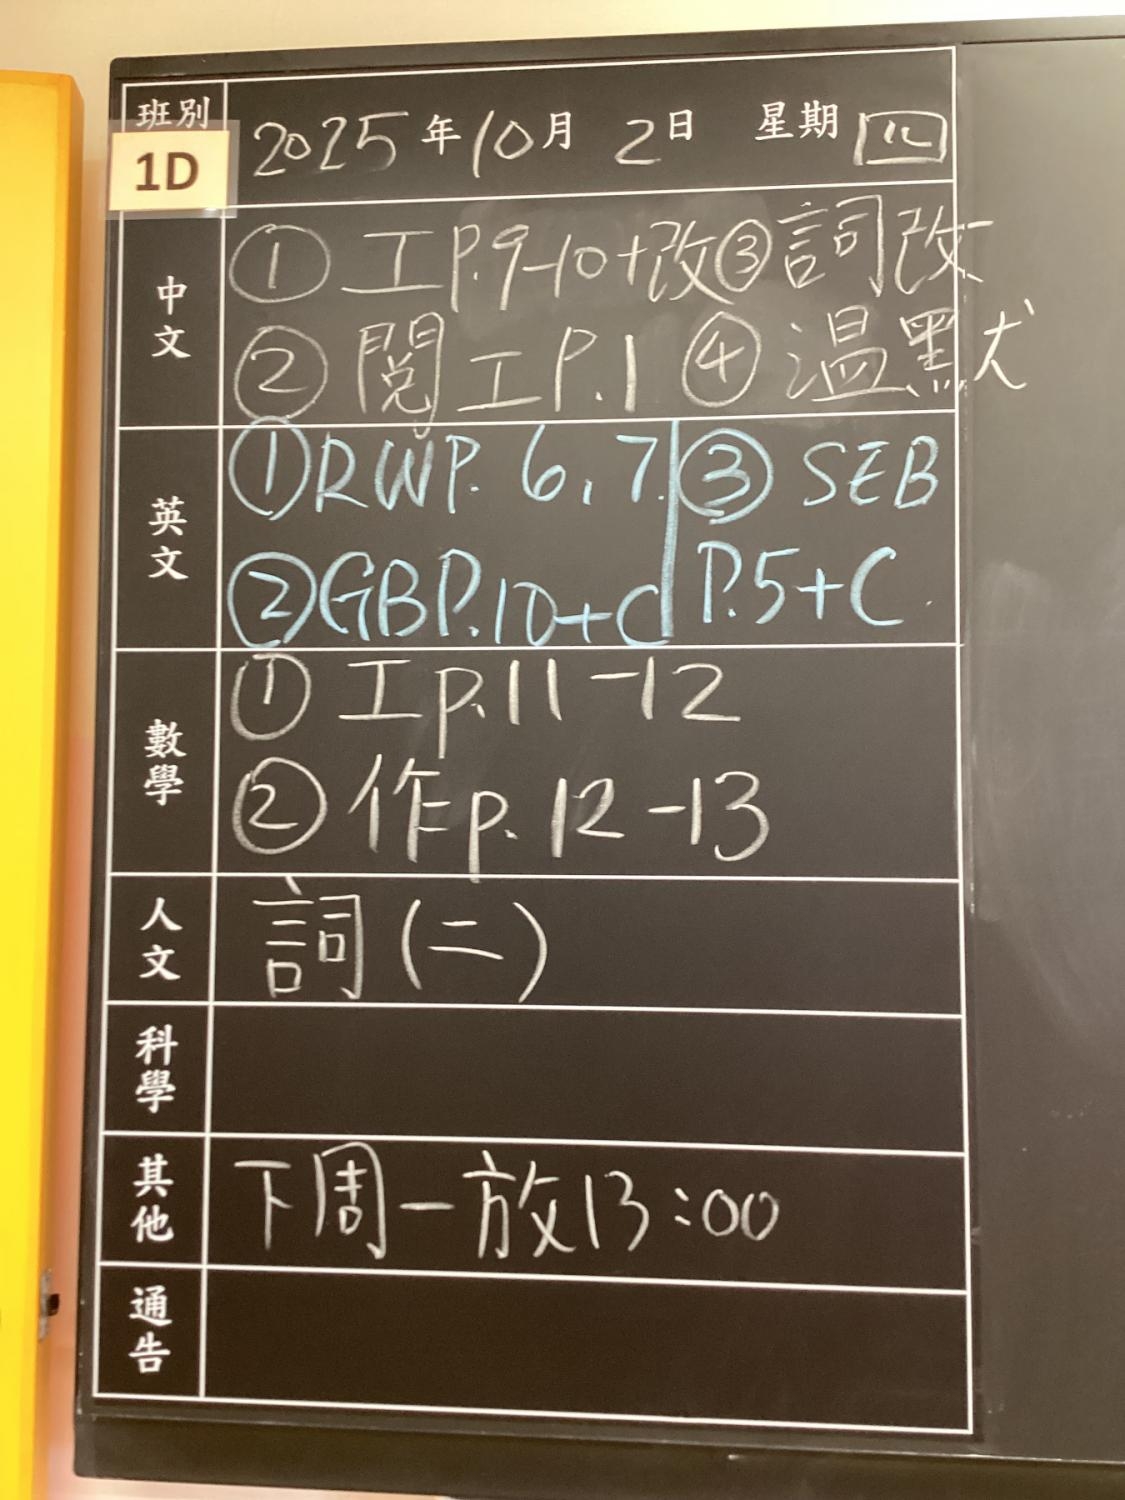 班別 2025年10月2日 星期四
1D
中文
① 工P.9-10+改 ③ 詞改
② 閱工P.1 ④ 溫默
英文
① RWP. 6, 7. ③ SEB
② GBP.10+C P.5+C.
數學
① 工p.11-12
② 作p.12-13
人文
詞(二)
科學
其他
下周一放13:00
通告